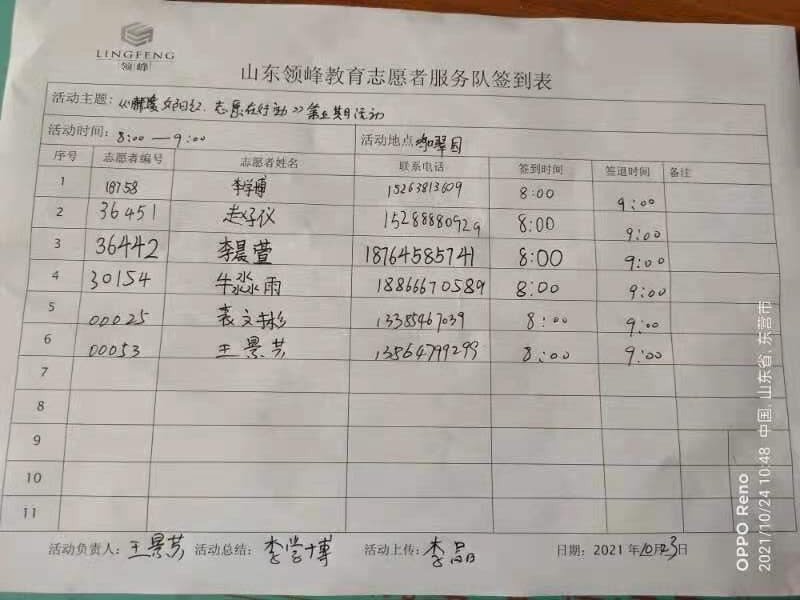 LINGFENG
领峰
山东领峰教育志愿者服务队签到表
活动主题: 夕阳红.志愿在行动>>第五期活动
活动时间: 8:00 — 9:00 活动地点 翠园
序号 志愿者编号 志愿者姓名 联系电话 签到时间 签退时间 备注
1 18758 李学博 15263813609 8:00 9:00
2 36451 赵妤仪 15288880929 8:00 9:00
3 36442 李晨萱 18764585741 8:00 9:00
4 30154 牛淼淼雨 18866670589 8:00 9:00
5 00025 袁文彬 13385467039 8:00 9:00
6 00053 王景芸 13564799299 8:00 9:00
7
8
9
10
11
活动负责人: 王景芸 活动总结: 李学博 活动上传: 李晶 日期: 2021年10月23日
OPPO Reno
2021/10/24 10:48 中国, 山东省, 东营市